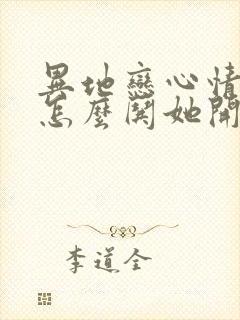 異地戀心情
怎麼鬨她開
李道全